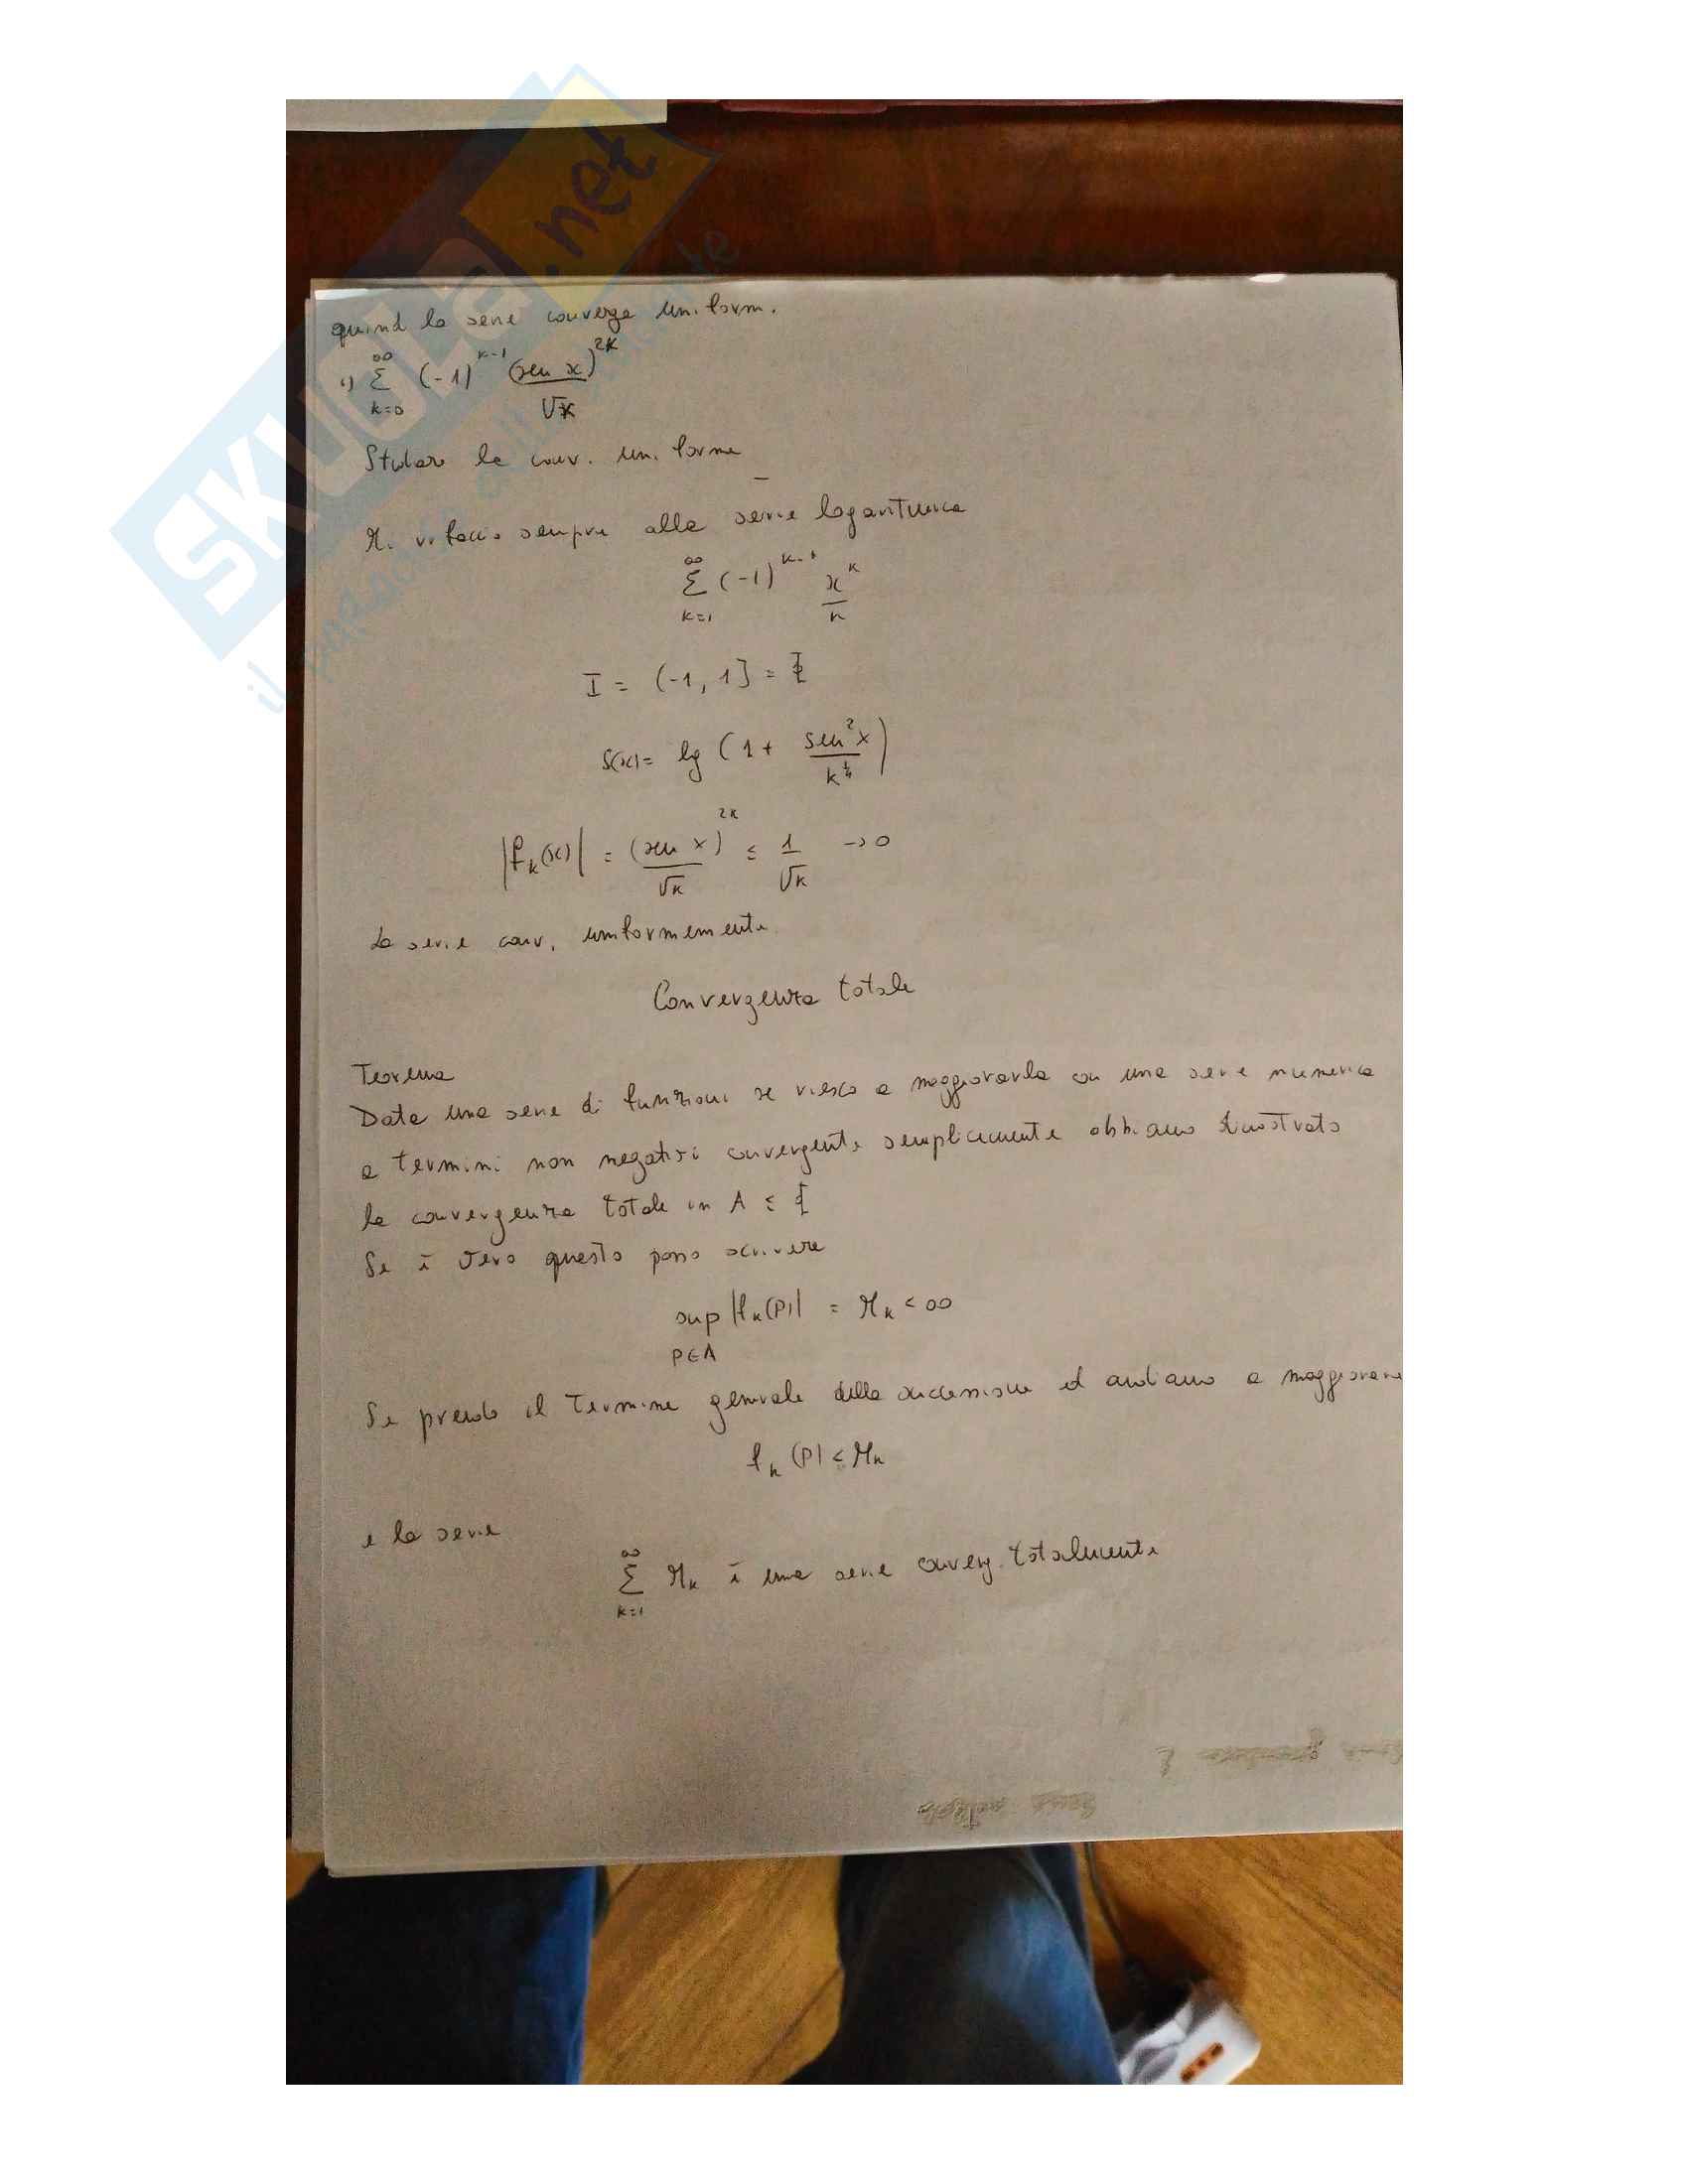 SKUOLa.net
il paradiso dello studente
quind la serie converge uniform.
1) ∞ Σ k=0 (-1)^{k-1} (sen x)^{2k} / √k
Studiare la conv. uniforme
Mi rifaccio sempre alla serie logaritmica
∞ Σ k=1 (-1)^{k-1} x^k / k
I = (-1, 1] =
S(x) = lg (1 + sen²x / k^{1/4})
|f_k(x)| = (sen x)^{2k} / √k ≤ 1 / √k → 0
La serie conv. uniformemente
Convergenza totale
Teorema
Data una serie di funzioni se riesco a maggiorarla con una serie numerica
a termini non negativi convergente semplicemente abbiamo dimostrato
la convergenza totale in A ⊆
Se è vero questo posso scrivere
sup |f_k(P)| = M_k < ∞
P∈A
Se prendo il termine generale della successione ed andiamo a maggiorare
f_k (P) < M_k
e la serie
∞ Σ k=1 M_k è una serie converg. totalmente